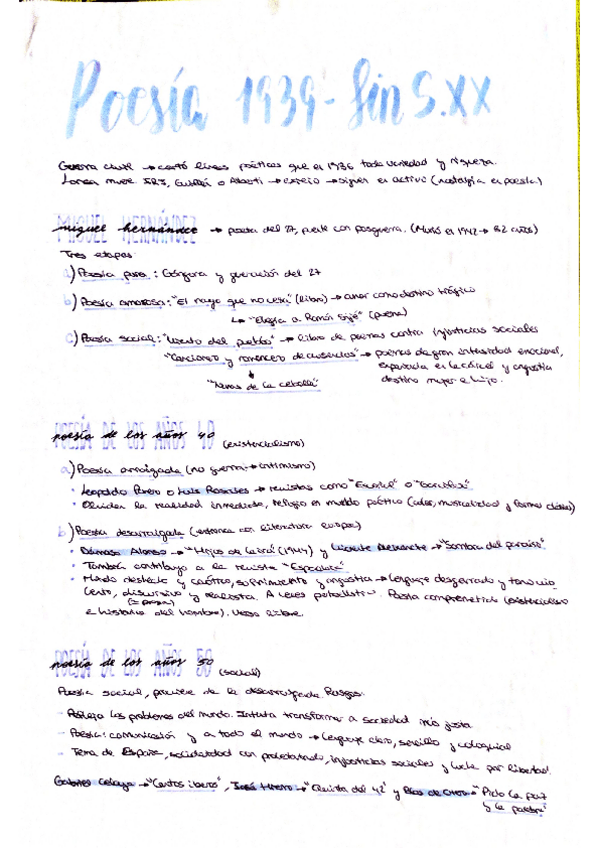 Poesía 1939- fin S.XX
Guerra civil → cortó líneas poéticas que en 1936 toda variedad y riqueza.
Lorca muere. JRJ, Guillén o Alberti → exilio → siguen en activo (nostalgia en poesía)
MIGUEL HERNÁNDEZ
miguel hernández → poeta del 27, puente con posguerra. (Murió en 1942 → 32 años)
Tres etapas:
a) Poesía pura: Góngora y generación del 27
b) Poesía amorosa: "El rayo que no cesa" (libro) → amor como destino trágico
↳ "Elegía a Ramón Sijé" (poema)
c) Poesía social: "Viento del pueblo" → libro de poemas contra injusticias sociales
"Cancionero y romancero de ausencias" → poemas de gran intensidad emocional,
en la cárcel y angustia
destino mujer e hijo.
"Nanas de la cebolla"
POESÍA DE LOS AÑOS 40
poesía de los años 40 (existencialismo)
a) Poesía arraigada (no guerra → intimismo)
• Leopoldo Panero o Luis Rosales → revistas como "Escorial" o "Garcilaso"
• Olvidan la realidad inmediata, refugio en mundo poético (, musicalidad y formas clásicas)
b) Poesía desarraigada (entronca con literatura europea)
• Dámaso Alonso → "Hijos de la ira" (1944) y Vicente Aleixandre → "Sombra del paraíso".
• También contribuyó a la revista "Espadaña"
• Mundo deshecho y caótico, sufrimiento y angustia → lenguaje desgarrado y tono vio
lento, discursivo y realista. A veces . Poesía comprometida (existencialismo
(= prosa)
e historia del hombre). Verso libre.
POESÍA DE LOS AÑOS 50
poesía de los años 50 (social)
Poesía social, proviene de la desarraigada. Rasgos:
- Refleja los problemas del mundo. Intenta transformar a sociedad más justa.
- Poesía: comunicación y a todo el mundo → lenguaje claro, sencillo y coloquial
- Tema de España, solidaridad con proletariado, injusticias sociales y lucha por libertad.
Gabriel Celaya → "Cantos iberos", José Hierro → "Quinta del 42" y Blas de Otero → "Pido la paz
y la palabra"